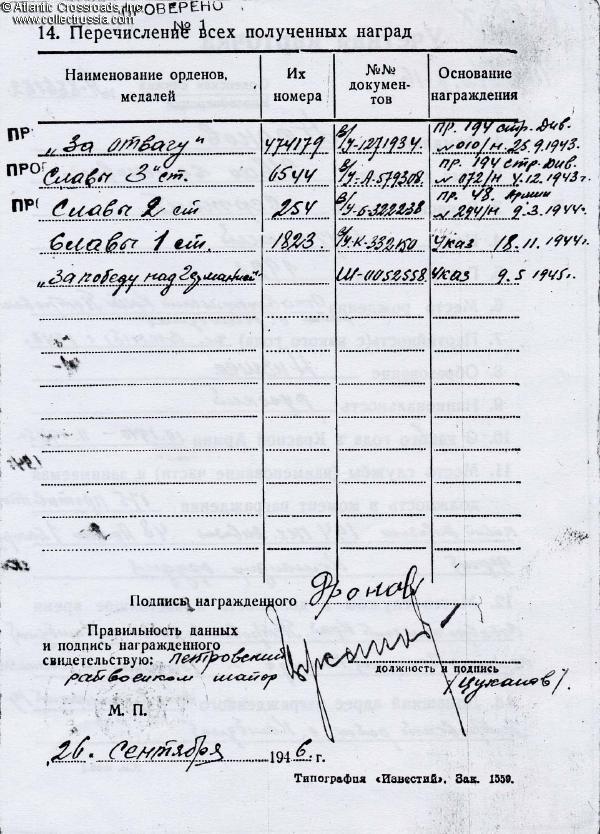 © Atlantic Crossroads, Inc.
www.collectrussia.com
ПРОВЕРЕНО
№ 1
14. Перечисление всех полученных наград
Наименование орденов, медалей
Их номера
№№ документов
Основание награждения
ПР
„За отвагу" 474179 В/У-1271934. Пр. 194 стр. Див. № 010/н. 25.9.1943.
ПРО
Славы 3й ст. 6544 В/У-А-579308. Пр. 194 стр. Див. № 072/н 4.12.1943г.
ПРО
Славы 2 ст 254 В/У-Б-322238 Пр. 48. Армии № 294/н 9.3.1944.
Славы 1 ст. 1823 У-К-332150 Указ 18.11.1944г
„За победу над Германией" Ш-0052558. Указ 9.5.1945г.
Подпись награжденного Фронов
Правильность данных
и подпись награжденного
свидетельствую: Петровский
райвоенком майор
должность и подпись
/Цуканов/.
М. П.
26. Сентября 1946 г.
Типография «Известий». Зак. 1559.